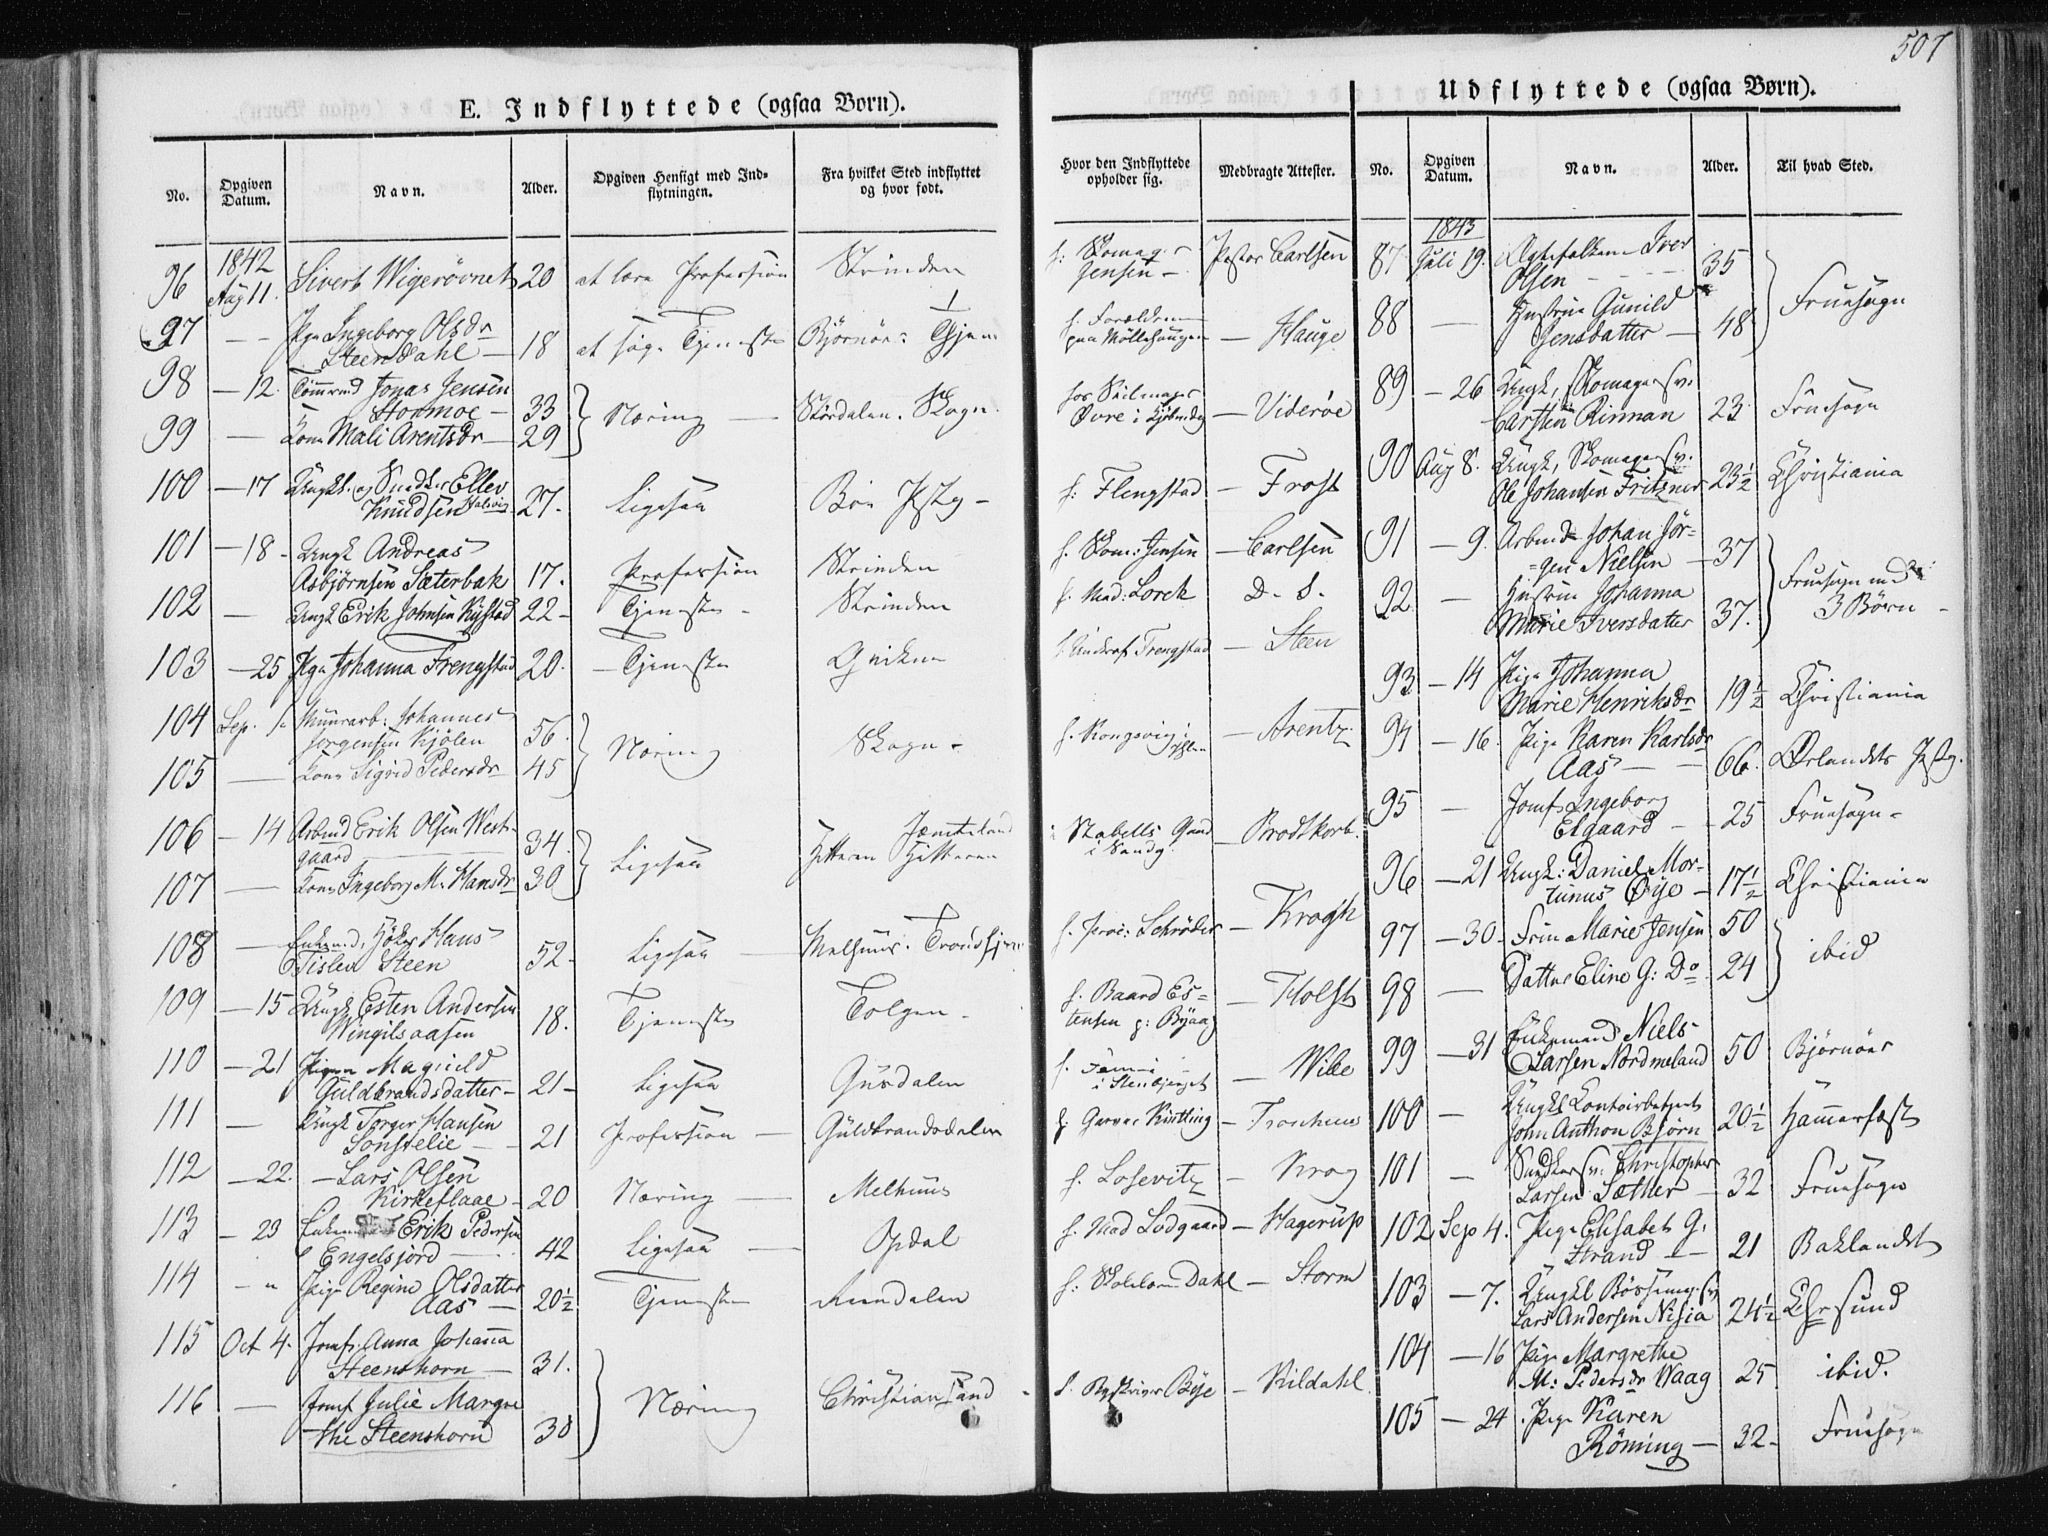 507
E. Indflyttede (ogsaa Børn).
Udflyttede (ogsaa Børn).
No. Opgiven Datum. Navn. Alder. Opgiven Hensigt med Indflytningen. Fra hvilket Sted indflyttet og hvor født. Hvor den Indflyttede opholder sig. Medbragte Attester.
1842
96 Aug 11. Sivert Wigerövnet 20 at lære Profession Strinden h: Skomag Jensen - Pastor Carlsen
97 - - Pge Ingeborg Olsdr
Steensdahl - 18 at søge Tjeneste Björnör h. Forældrene paa Möllehaugen - Hauge
98 - 12. Tömmrmd Jonas Jensen
Stormoe - 33 Næring - Størdalen. Skogn. hos Øvre i - Viderøe
99 - Kone Mali Arentsdr - 29
100 - 17 Ungkl. og Snedker Ellev
Knudsen 27. Ligesaa Præstg - h: Flengstad - Frost
101 - 18 - Ungk Andreas
Asbjörnsen Sæterbak 17. Profession Strinden h. Skom: Jensen - Carlsen
102 - Ungk Erik Johnsen Rystad 22 - Tjeneste - Strinden h. Mad: Lorck D. S.
103 - 25 Pge Johanna Frengstad 20. - Tjeneste h. Underof. Frengstad - Steen
104 Sep. 1. Muurarb: Johannes
Jörgensen Kjölen 56. Næring Skogn - h. Kongsvig i - Arentz
105 - Kone Sigrid Pedersdr 45
106 - 14 Arbmd Erik Olsen West-
gaard 34. Ligesaa Jæmteland
Hitteren Hitteren i Stabells Gaard i Sandg. - Brodtkorb.
107 - Kone Ingeborg M. Hansdr 30
108 - Enkemd, Höker Hans
Tisløv Steen 52 - Ligesaa - Melhuus. Trondhjem h. Proc: Schröder - Krogh
109 - 15 Ungk Esten Andersen
Wingilsaasen 18. Tjeneste Tolgen - h. Baard Es-
tensen p: Byaas - Holst
110 - 21 Pigen Magnild
Guldbrandsdatter - 21 - Ligesaa Guldalen h. - Wibe
111 - Ungk Torger Hansen
Sonstelie - 21 Profession - Guldbrandsdalen h: Garver Kintling -
112 - 22. - Lars Olsen
Kirkeflaae - 20 Næring - Melhuus h. Losevitz - Krog
113 - 23 Enkemd Erik Pedersen
Engelsjord - 42 Ligesaa - Opdal h. Mad Lodgaard - Hagerup
114 - " Pige Regine Olsdatter
Aas - 20½ Tjeneste h: Dahl - Storm
115 Oct 4. Jomf. Anna Johanna
Steenshorn - 31. Næring Christiansund - h. Byskriver Bye - Kildahl.
116 - Jomf Julie Margre
the Steenshorn 30
No. Opgiven Datum. Navn. Alder. Til hvad Sted.
1843
87 Juli 19. Ægtefolkene Iver
Olsen - - - 35 Fruesogn
88 - Hustrue Gunild
Jensdatter - 48
89 - 26 Ungk, Skomagersv.
Carsten Rinnan 23. Fruesogn
90 Aug 8. Ungk, Skomagersv.
Ole Johansen Fritzner 23½ Christiania
91 - 9. Arbmd Johan Jör-
gen Nielsen - 37 Fruesogn med
3 Børn -
92. - Hustrue Johanna
Marie Iversdatter 37.
93 - 14 Pige Johanna
Marie Henriksdr 19½ Christiania
94 - 16. Pige Karen Karlsdr
Aas - - 66. Ørlandets Præstg.
95 - Jomf Ingeborg
Elgaard - 25 Fruesogn -
96 - 21 Ungk: Daniel Mor-
tinus Øye - 17½ Christiania
97 - 30 - Frue Marie Jensen 50 ibid
98 - Datter Eline G: Do 24
99 - 31 Enkemand Niels
Larsen Nordmeland 50 Björnöer
100 - Ungkl Contoirbetjent
John Anthon Björn 20½ Hammerfest
101 - Snedkersv. Christopher
Larsen Sæther - 32 Fruesogn
102 Sep 4. Pige Elisabet G.
Strand - 21 Baklandet
103 - 7. Ungkl
Lars Andersen Nisia 24½ Chrsund
104 - 16 Pige Margrethe
M: Pedersdr Waag 25 ibid.
105 - 24. Pige Karen
Röming - 32 - Fruesogn